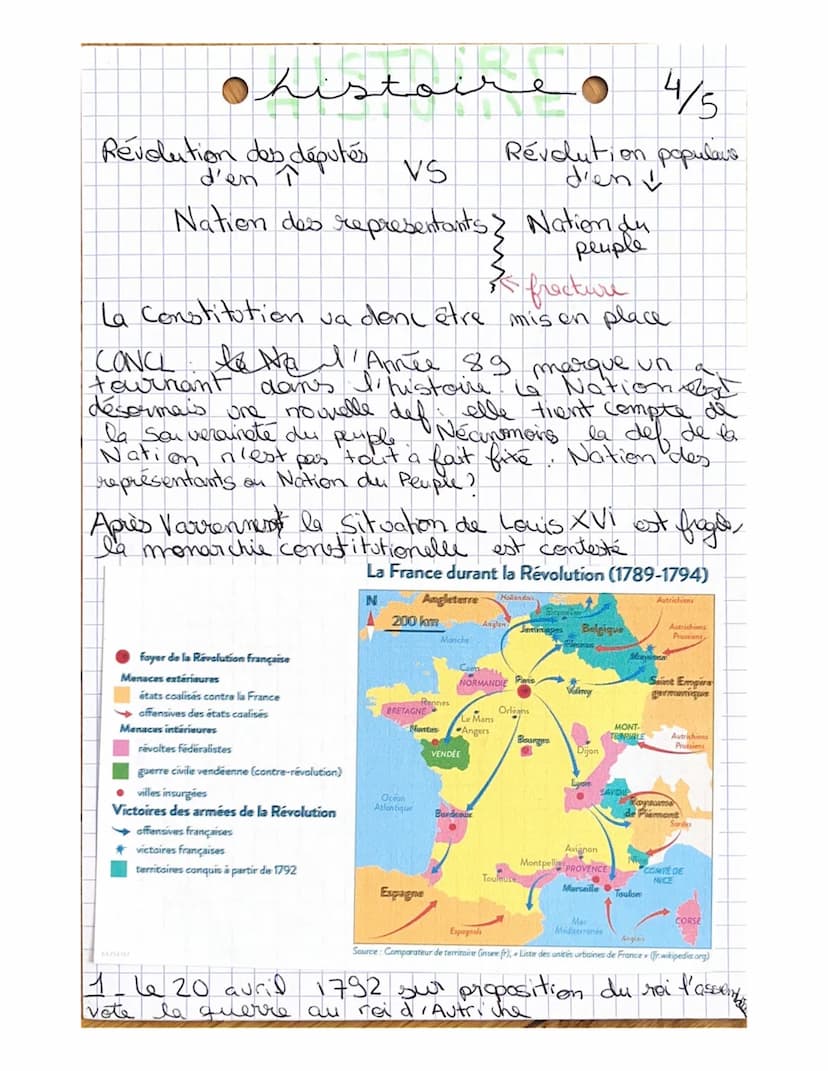 HISTOIRE
histoire
4/5
Révolution des députés
d'en ↑
VS
Révolution populaire
d'en ↓
Nation des representants
Nation du
peuple
← fracture
La Constitution va donc être mis en place
CONCL : la Na l'Année 89 marque un
tournant dans l'histoire. La Nation est à
désormais une nouvelle def : elle tient compte de
la souveraineté du peuple. Néanmoins la def de la
Nation n'est pas tout à fait fixé. Nation des
représentants ou Nation du Peuple ?
Après Varrennest la situation de Louis XVI est fragile,
la monarchie constitutionelle est contesté
La France durant la Révolution (1789-1794)
foyer de la Révolution française
Menaces extérieures
états coalisés contre la France
offensives des états coalisés
Menaces intérieures
révoltes fédéralistes
guerre civile vendéenne (contre-révolution)
villes insurgées
Victoires des armées de la Révolution
offensives françaises
victoires françaises
territoires conquis à partir de 1792
N
200 km
Angleterre
Hollandais
Autrichiens
Anglais
Jemmapes
Belgique
Autrichiens
Prussiens
Manche
Mayence
Caen
NORMANDIE
Paris
Valmy
Saint Empire
germanique
Rennes
BRETAGNE
Le Mans
Orléans
Nantes
Angers
Bourges
MONT-
TERRIBLE
Autrichiens
Prussiens
VENDÉE
Dijon
Océan
Atlantique
Lyon
SAVOIE
Royaume
de Piémont
Bordeaux
Sardes
Avignon
Montpellier
PROVENCE
Nice
COMTÉ DE
NICE
Toulouse
Marseille
Toulon
Espagne
Espagnols
Mer
Méditerranée
Anglais
CORSE
Source : Comparateur de territoire (insee.fr), « Liste des unités urbaines de France » (fr.wikipedia.org)
1_ Le 20 avril 1792 sur proposition du roi l'assemblée
vote la guerre au roi d'Autriche